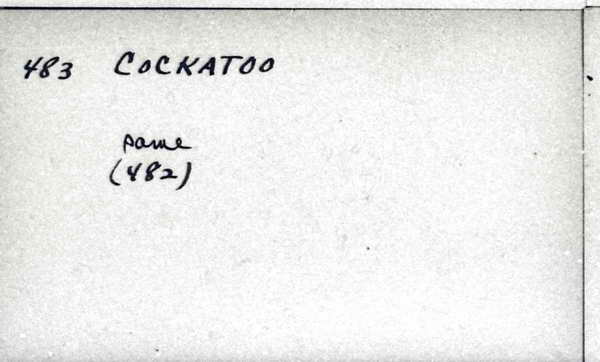 483 COCKATOO
same
(482)